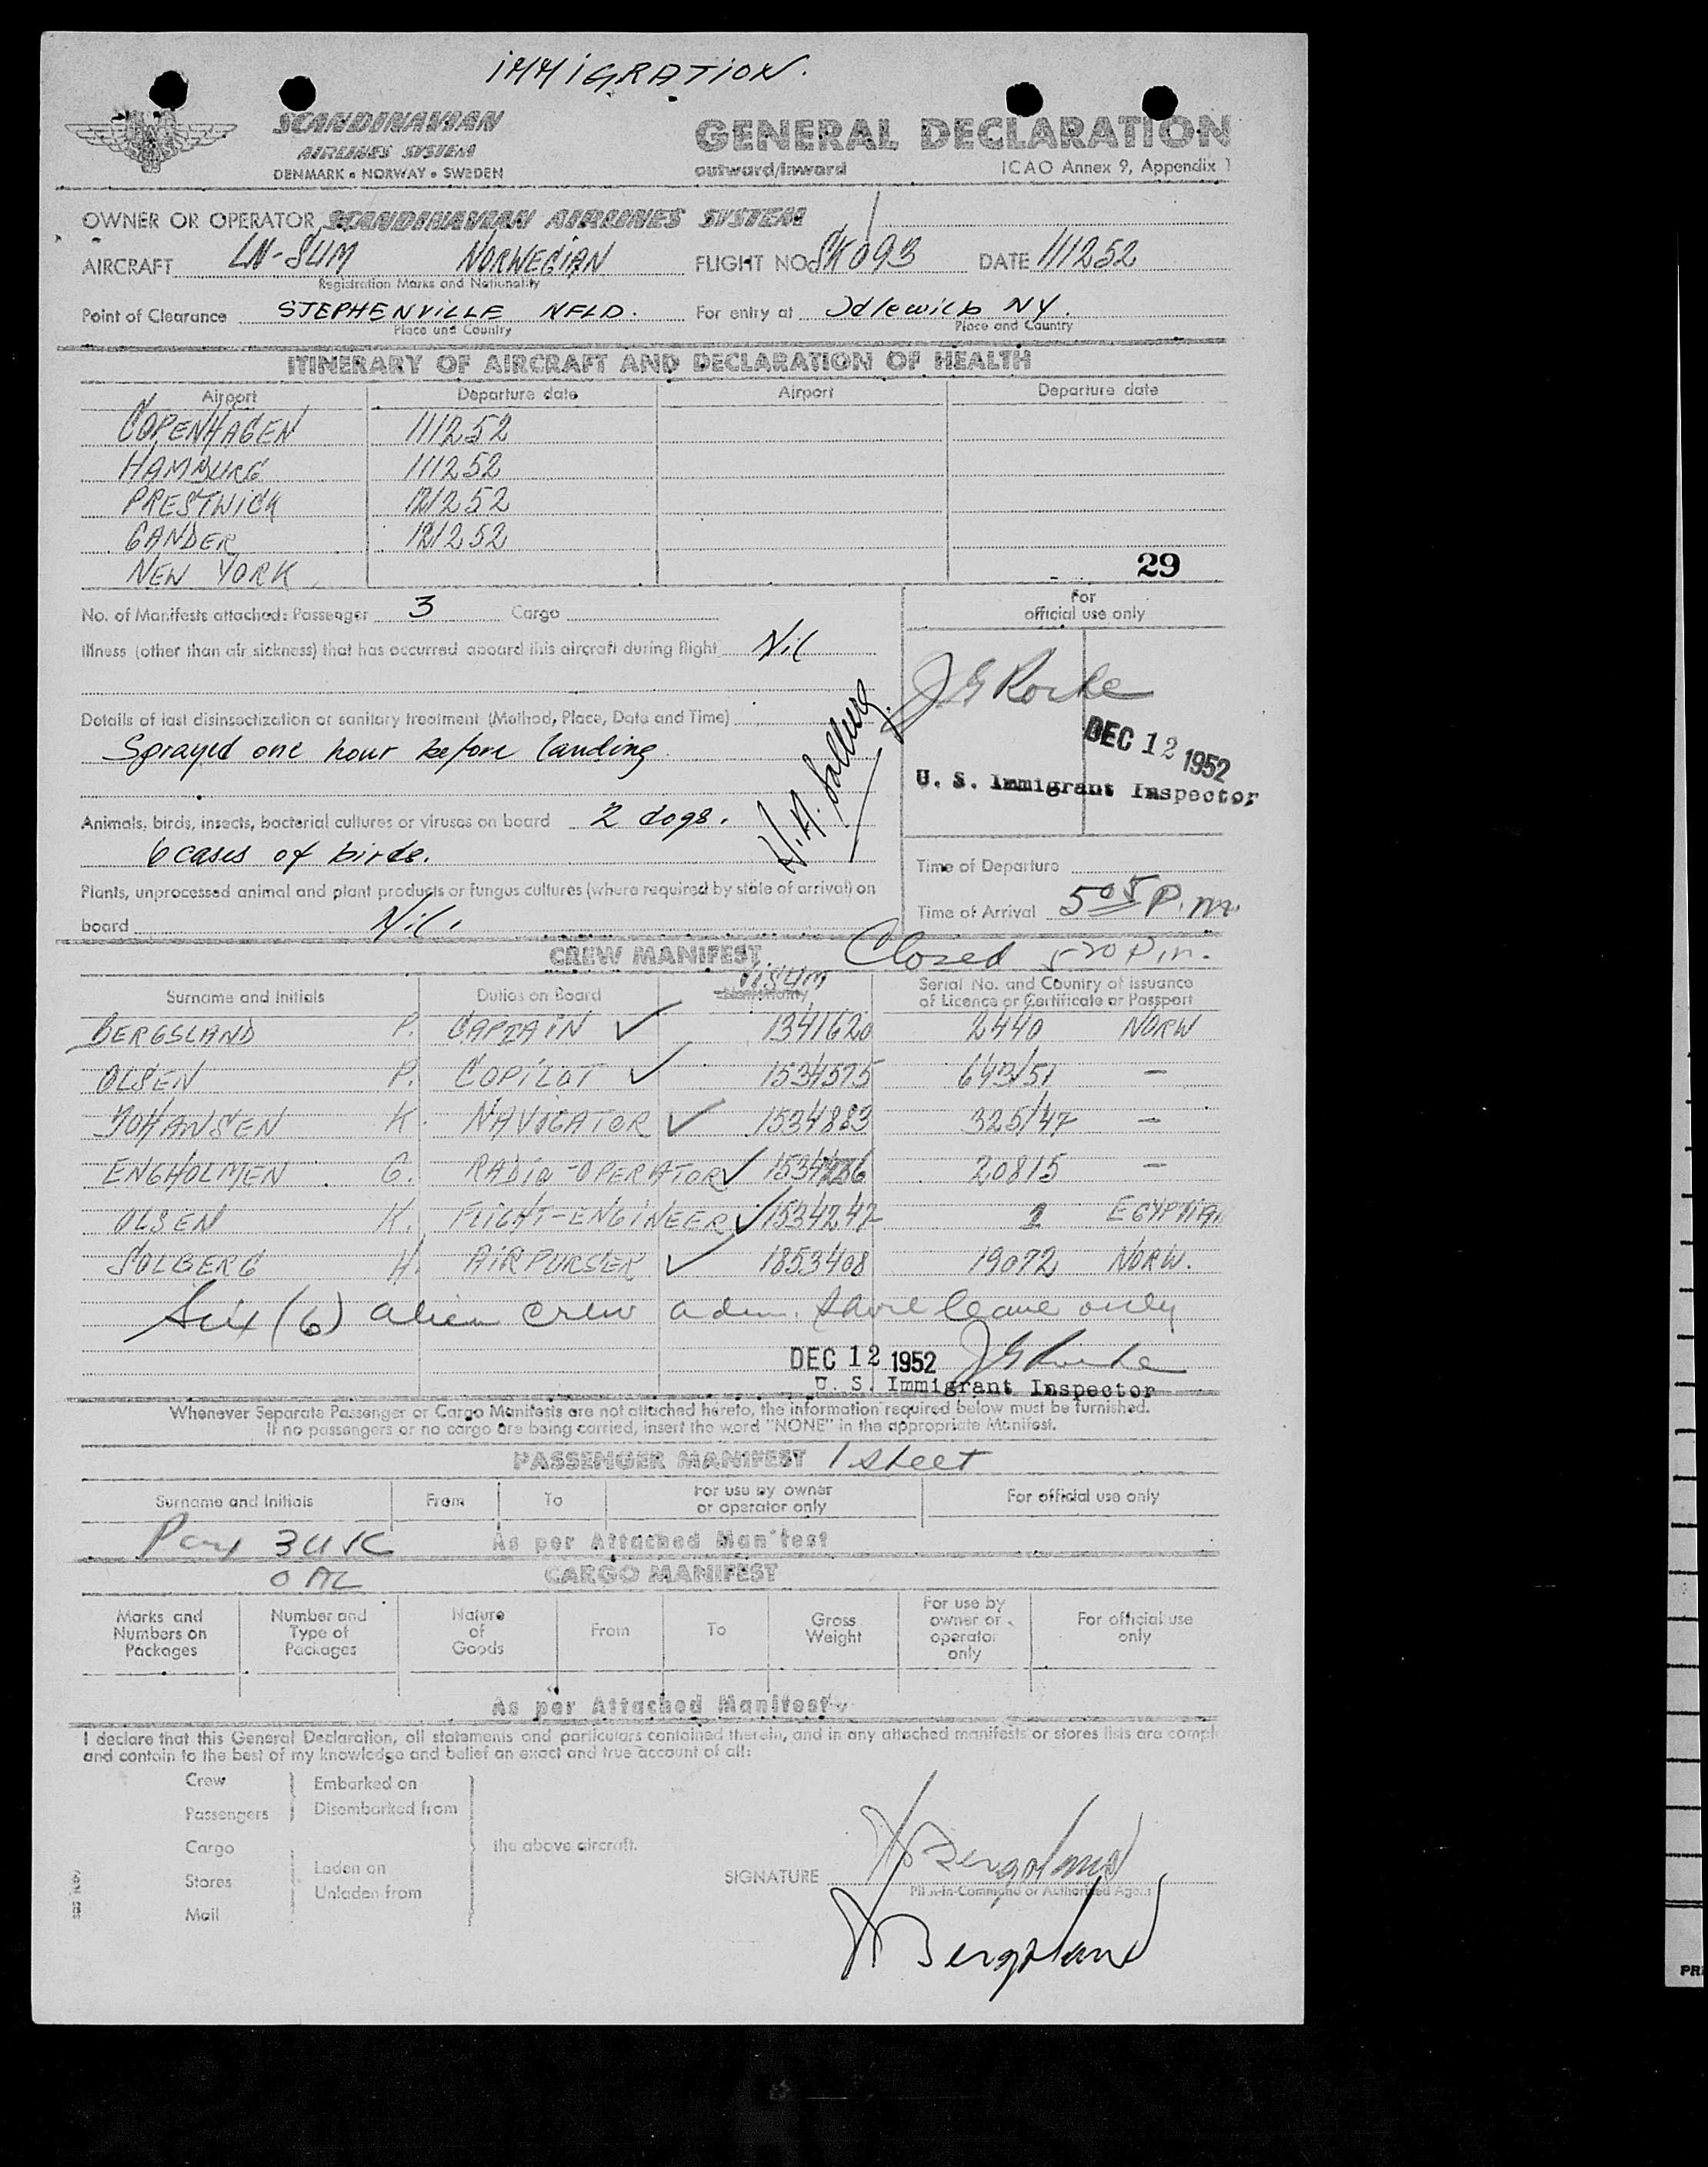 IMMIGRATION.
SCANDINAVIAN
AIRLINES SYSTEM
DENMARK • NORWAY • SWEDEN
GENERAL DECLARATION
outward/inward ICAO Annex 9, Appendix 1
OWNER OR OPERATOR SCANDINAVIAN AIRLINES SYSTEM
AIRCRAFT LN-SUM NORWEGIAN FLIGHT NO SK093 DATE 111252
Registration Marks and Nationality
Point of Clearance STEPHENVILLE NFLD. For entry at Idlewild NY.
Place and Country Place and Country
ITINERARY OF AIRCRAFT AND DECLARATION OF HEALTH
Airport Departure date Airport Departure date
COPENHAGEN 111252
HAMBURG 111252
PRESTWICK 121252
GANDER 121252
NEW YORK
29
No. of Manifests attached: Passenger 3 Cargo
For
official use only
Illness (other than air sickness) that has occurred aboard this aircraft during flight Nil
J G Rocke
DEC 12 1952
U. S. Immigrant Inspector
Details of last disinsectization or sanitary treatment (Method, Place, Date and Time)
Sprayed one hour before landing
Animals, birds, insects, bacterial cultures or viruses on board 2 dogs.
6 cases of birds.
Plants, unprocessed animal and plant products or fungus cultures (where required by state of arrival) on
board Nil.
Time of Departure
Time of Arrival 5 05 P.m.
CREW MANIFEST Closed 5 20 P.m.
Visum
Surname and Initials Duties on Board Nationality Serial No. and Country of issuance
of Licence or Certificate or Passport
BERGSLAND P. CAPTAIN ✓ 1341620 2440 NORW
OLSEN P. COPILOT ✓ 1534575 643/51 —
JOHANSEN K. NAVIGATOR ✓ 1534883 325/47 —
ENGHOLMEN G. RADIO-OPERATOR ✓ 20815 —
OLSEN K. FLIGHT-ENGINEER ✓ 1534247 2 EGYPTIAN
SOLBERG H. AIRPURSER ✓ 1853408 19072 NORW.
Six (6) alien crew adm. shore leave only
DEC 12 1952 J G Rocke
U. S. Immigrant Inspector
Whenever Separate Passenger or Cargo Manifests are not attached hereto, the information required below must be furnished.
If no passengers or no cargo are being carried, insert the word "NONE" in the appropriate Manifest.
PASSENGER MANIFEST 1 sheet
Surname and Initials From To For use by owner
or operator only For official use only
As per Attached Manifest
CARGO MANIFEST
Marks and
Numbers on
Packages
Number and
Type of
Packages
Nature
of
Goods
From
To
Gross
Weight
For use by
owner or
operator
only
For official use
only
As per Attached Manifest
I declare that this General Declaration, all statements and particulars contained therein, and in any attached manifests or stores lists are compl
and contain to the best of my knowledge and belief an exact and true account of all:
Crew
Passengers
Embarked on
Disembarked from
Cargo
Stores
Mail
Laden on
Unladen from
the above aircraft.
SIGNATURE Bergsland
Pilot-in-Command or Authorised Agent
Bergsland
PR